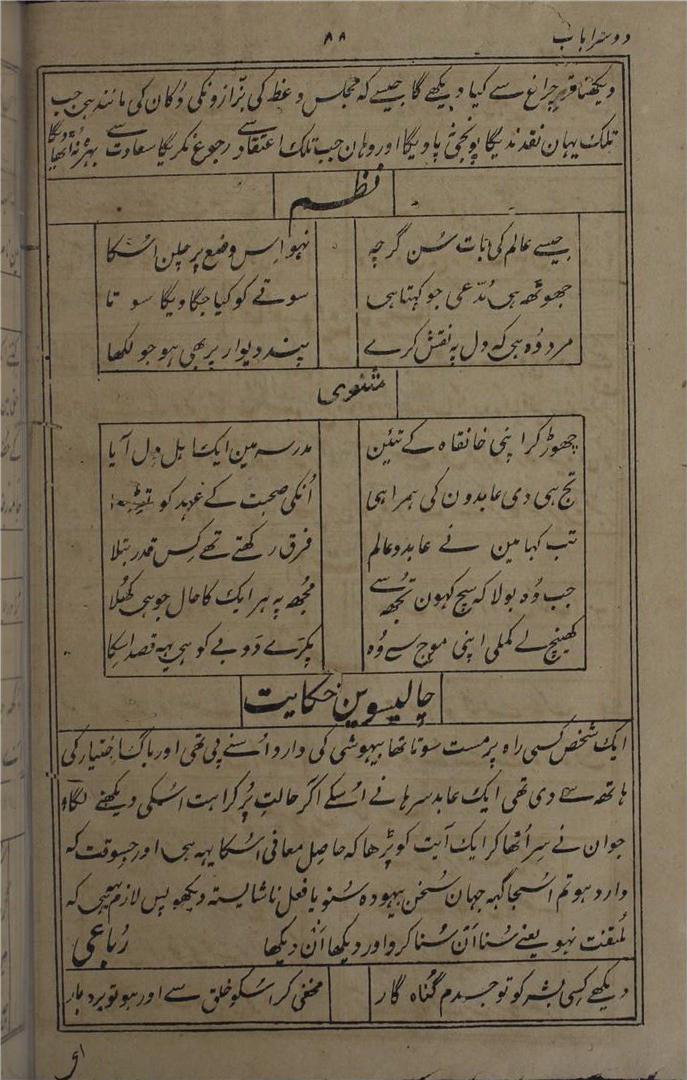 دوسرا باب
۸۸
دیکھنا قر چراغ سے کیا دیکھے گا جیسے کہ مجلس وعظ کی بزازونکی دکان کی مانند ہی جب
تلک یہان نقد ندیگا پونجی نپاویگا اور وہان جب تلک اعتقاد سے رجوع نکریگا سعادت سے بہرہ نہ اٹھاویگا
نظم
جیسے عالم کی بات سُن گرچہ نہو اِس وضع پر چلن اُسکا
جھوٹھہ ہی مُدّعی جو کہتا ہی سوتے کو کیا جگاویگا سوتا
مرد وُہ ہی کہ دل پہ نقش کرے پند دیوار پر بھی ہو جو لکھا
مثنوی
چھوڑ کر اپنی خانقاہ کے تئین مدرسہ مین ایک اہل دِل آیا
تج ہی دی عابدون کی ہمراہی اُنکی صحبت کے عہد کو
تب کہا مین نے عابد و عالم فرق رکھتے تھے کِس قدر بتلا
جب وُہ بولا کہ سچ کہون تجھہ سے مُجھہ پہ ہر ایک کا حال جو ہی کھُلا
کھینچ لے کملی اپنی موج سے وُہ پکڑے ڈوبے کو ہی یہہ قصد اِسکا
چالیسوین حکایت
ایک شخص کسی راہ پر مست سوتا تھا بیہوشی کی دارو اُسنے پی تھی اور باگ اختیار کی
ہاتھہ سے دی تھی ایک عابد سرہانے اُسکے آکر حالت پُر کراہت اُسکی دیکھنے لگا وو
جوان نے سِر اُٹھا کر ایک آیت کو پڑھا کہ حاصِل معافی اُسکا یہہ ہی اور جسوقت کہ
وارد ہو تم اُسجاگہہ جہان سُخن بیہودہ سُنو یا فعل ناشایستہ دیکھو پس لازم ہیگی کہ
مُلتفت نہو یعنے سُنا اَن سُنا کرو اور دیکھا اَن دیکھا رُباعی
دیکھے کِسی بشر کو تو جسدم گُناہ گار مخفی کر اُسکو خلق سے اور ہو تو بردبار